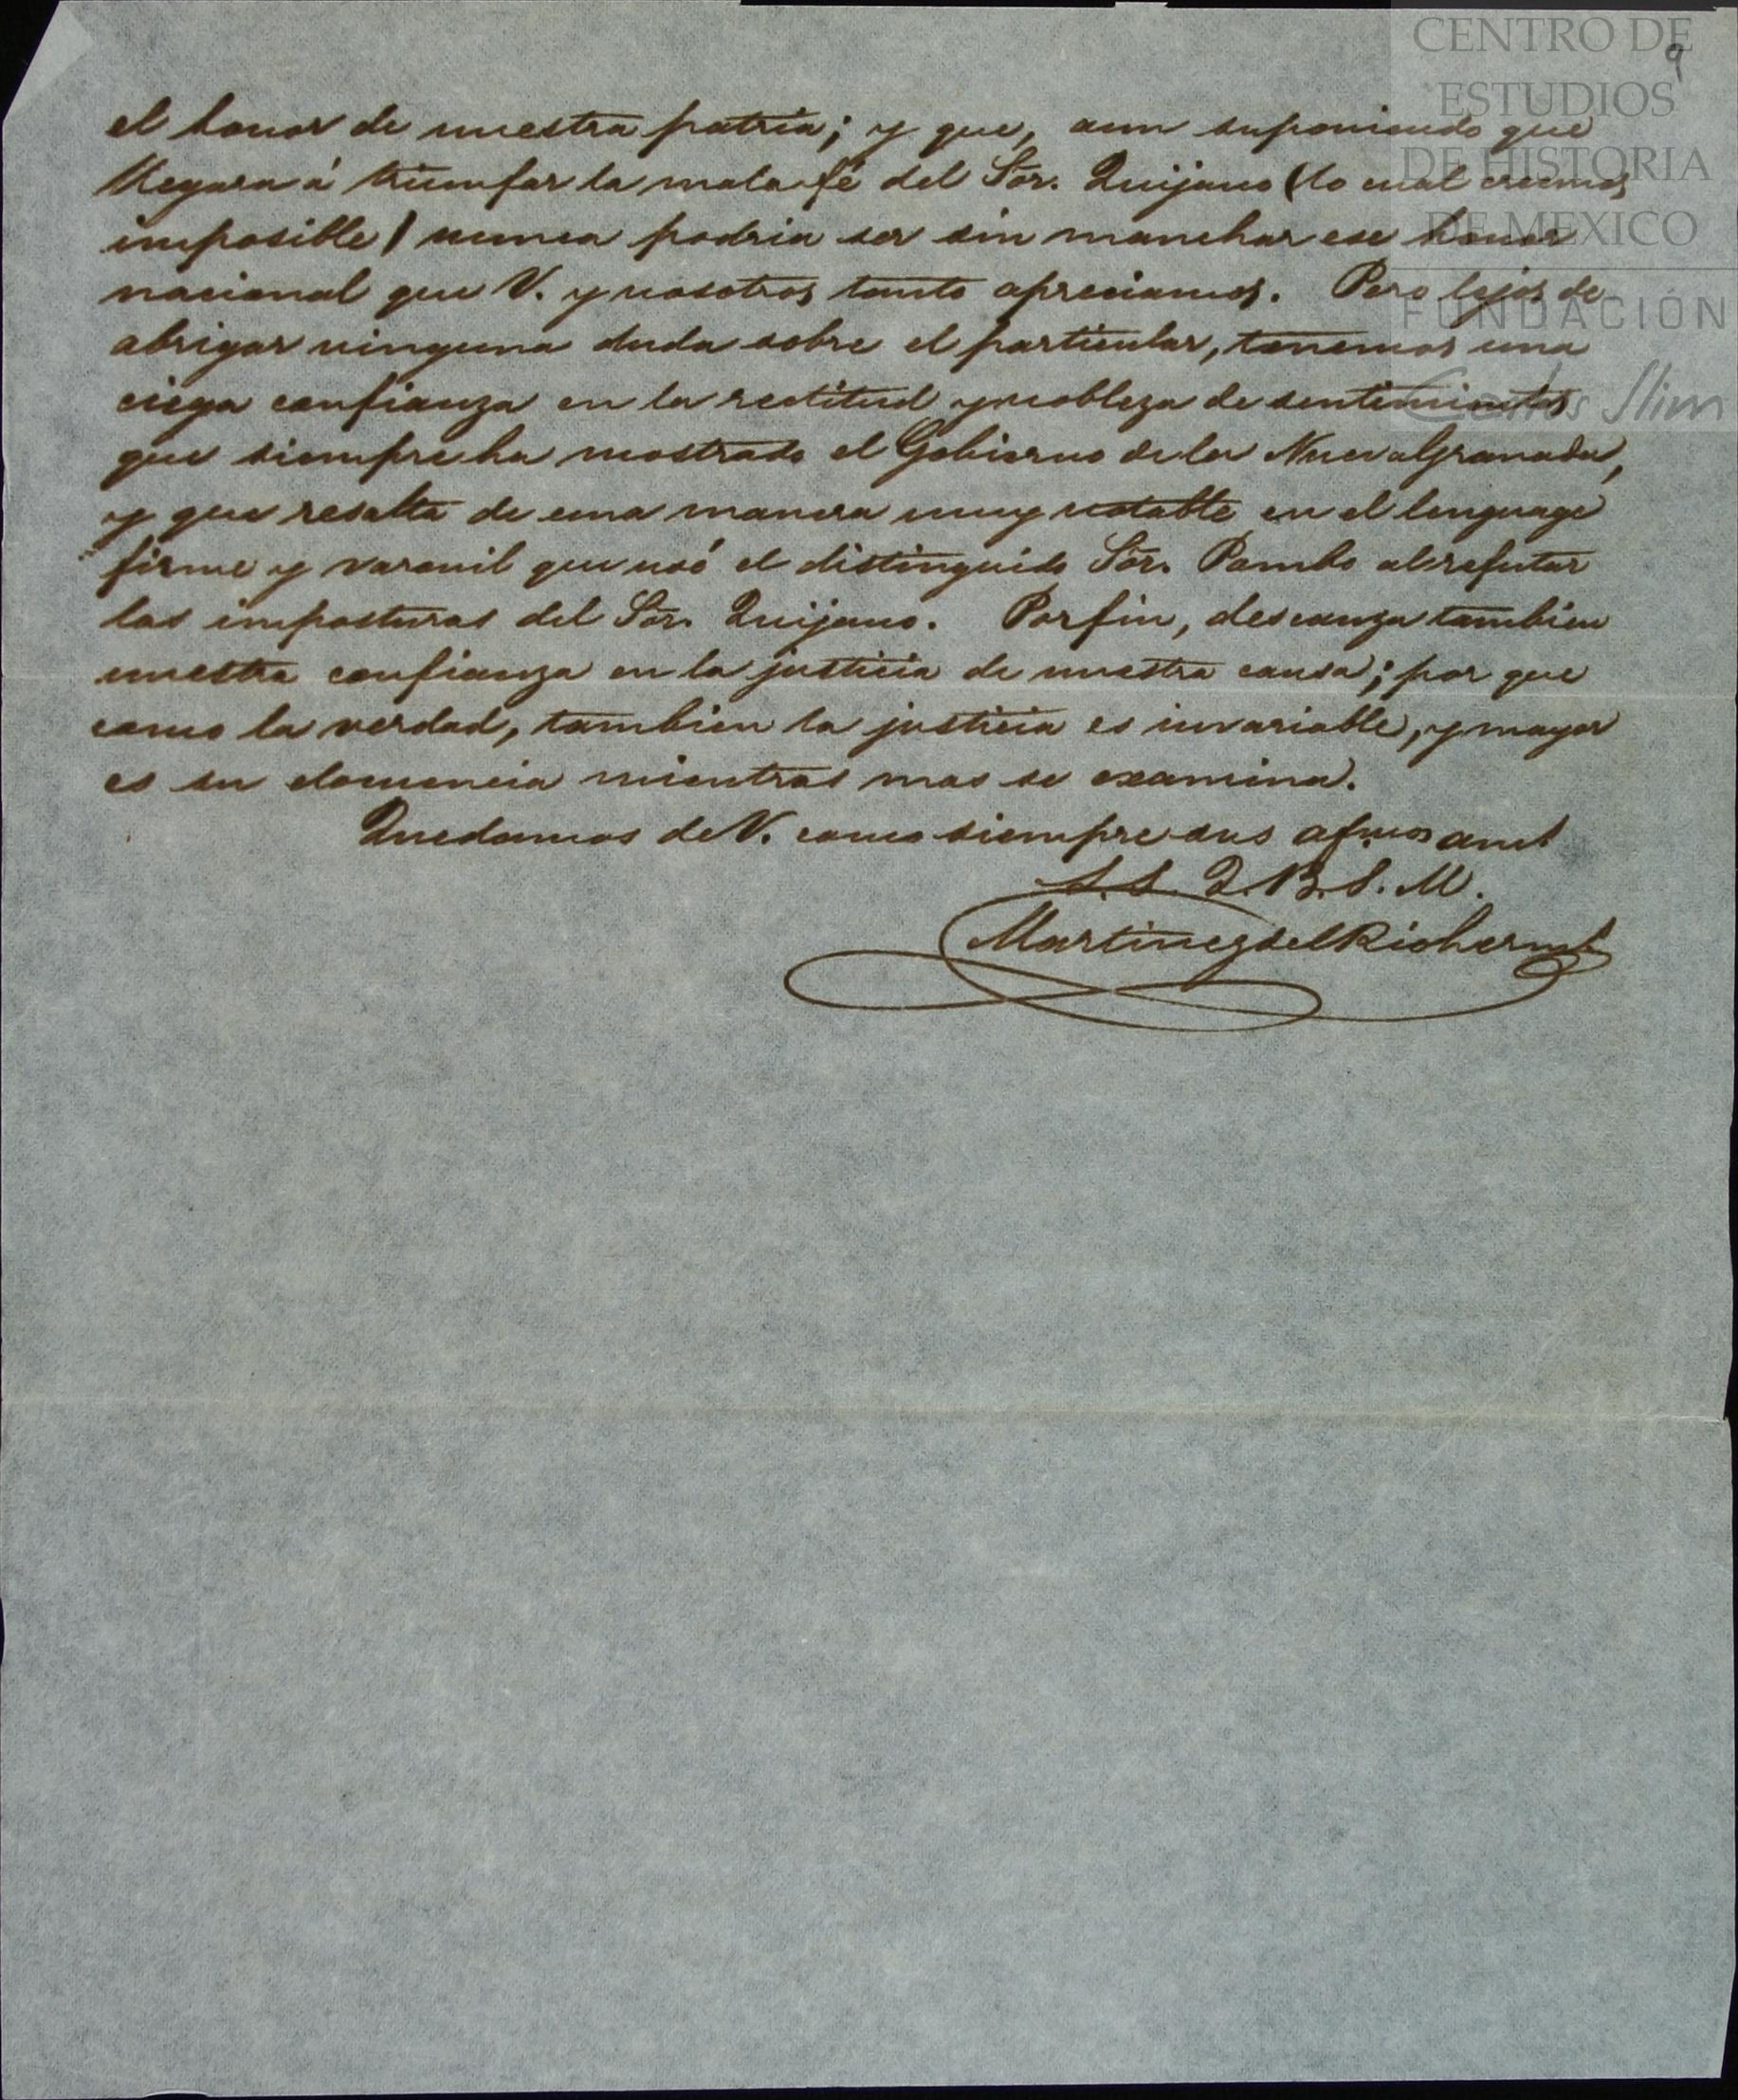 CENTRO DE
ESTUDIOS
DE HISTORIA
DE MEXICO
FUNDACIÓN
Carlos Slim
9
el honor de nuestra patria; y que, aun suponiendo que
llegara á triumfar la mala fé del Sōr. Quijano (lo cual creemos
imposible) nunca podria ser sin manchar ese honor
nacional que V. y nosotros tanto apreciamos. Pero lejos de
abrigar ninguna duda sobre el particular, tenemos una
ciega confianza en la rectitud y nobleza de sentimientos
que siempre ha mostrado el Gobierno de la Nueva Granada,
y que resalta de una manera muy notable en el lenguage
firme y varonil que usó el distinguido Sōr. Pombo al refutar
las imposturas del Sōr. Quijano. Por fin, descanza tambien
nuestra confianza en la justicia de nuestra causa; por que
como la verdad, tambien la justicia es invariable, y mayor
es su elocuencia mientras mas se examina.
Quedamos de V. como siempre sus afmos am.s
S. S. Q. B. S. M.
Martinez del Rio herm.s